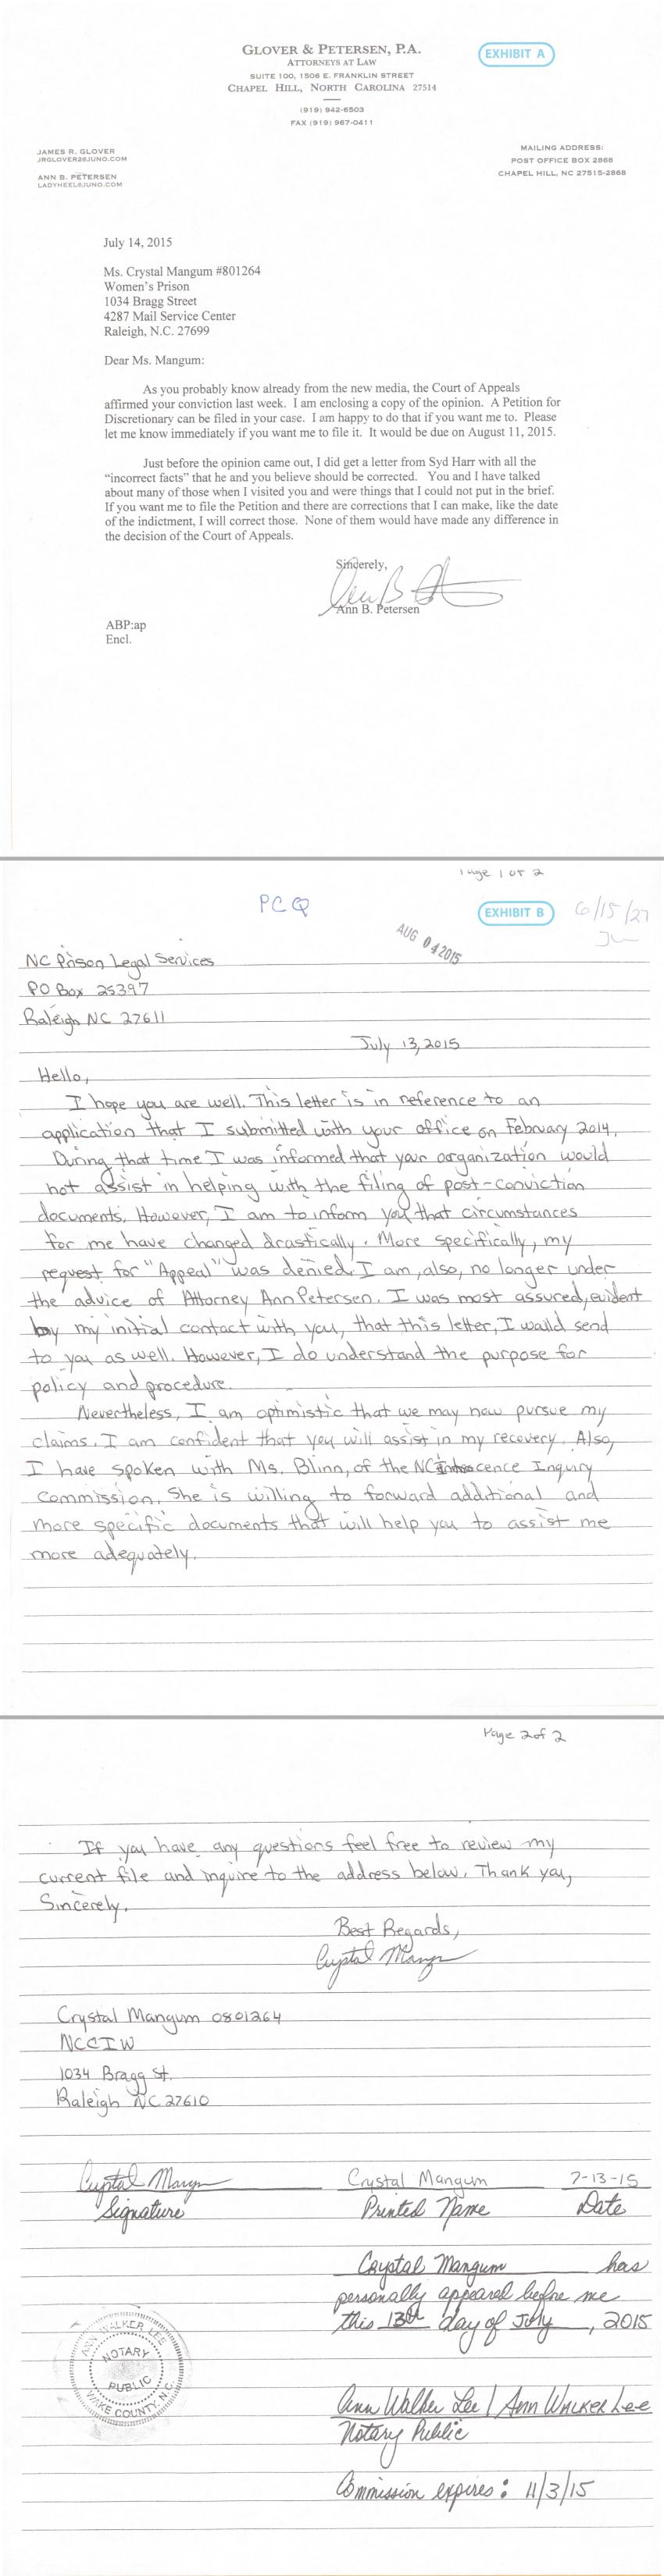 GLOVER & PETERSEN, P.A.
ATTORNEYS AT LAW
SUITE 100, 1506 E. FRANKLIN STREET
CHAPEL HILL, NORTH CAROLINA 27514
(919) 942-6503
FAX (919) 967-0411
EXHIBIT A
JAMES R. GLOVER
JRGLOVER2@JUNO.COM
ANN B. PETERSEN
LADYHEEL@JUNO.COM
MAILING ADDRESS:
POST OFFICE BOX 2868
CHAPEL HILL, NC 27515-2868
July 14, 2015
Ms. Crystal Mangum #801264
Women's Prison
1034 Bragg Street
4287 Mail Service Center
Raleigh, N.C. 27699
Dear Ms. Mangum:
As you probably know already from the new media, the Court of Appeals
affirmed your conviction last week. I am enclosing a copy of the opinion. A Petition for
Discretionary can be filed in your case. I am happy to do that if you want me to. Please
let me know immediately if you want me to file it. It would be due on August 11, 2015.
Just before the opinion came out, I did get a letter from Syd Harr with all the
"incorrect facts" that he and you believe should be corrected. You and I have talked
about many of those when I visited you and were things that I could not put in the brief.
If you want me to file the Petition and there are corrections that I can make, like the date
of the indictment, I will correct those. None of them would have made any difference in
the decision of the Court of Appeals.
Sincerely,
Ann B. Petersen
ABP:ap
Encl.
Page 1 of 2
PCQ
EXHIBIT B
6/15/27
AUG 04 2015
NC Prison Legal Services
PO Box 25397
Raleigh NC 27611
July 13, 2015
Hello,
I hope you are well. This letter is in reference to an
application that I submitted with your office on February 2014.
During that time I was informed that your organization would
not assist in helping with the filing of post-conviction
documents. However, I am to inform you that circumstances
for me have changed drastically. More specifically, my
request for "Appeal" was denied. I am, also, no longer under
the advice of Attorney Ann Petersen. I was most assured, evident
by my initial contact with you, that this letter, I would send
to you as well. However, I do understand the purpose for
policy and procedure.
Nevertheless, I am optimistic that we may now pursue my
claims. I am confident that you will assist in my recovery. Also,
I have spoken with Ms. Blinn, of the NC Innocence Inquiry
Commission. She is willing to forward additional and
more specific documents that will help you to assist me
more adequately.
Page 2 of 2
If you have any questions feel free to review my
current file and inquire to the address below. Thank you,
Sincerely.
Best Regards,
Crystal Mangum
Crystal Mangum 0801264
NCCIW
1034 Bragg St.
Raleigh NC 27610
Crystal Mangum Crystal Mangum 7-13-15
Signature Printed Name Date
Crystal Mangum has
personally appeared before me
this 13th day of July, 2015
ANN WALKER LEE
NOTARY
PUBLIC
WAKE COUNTY, N.C.
Ann Walker Lee / Ann Walker Lee
Notary Public
Commission expires: 11/3/15